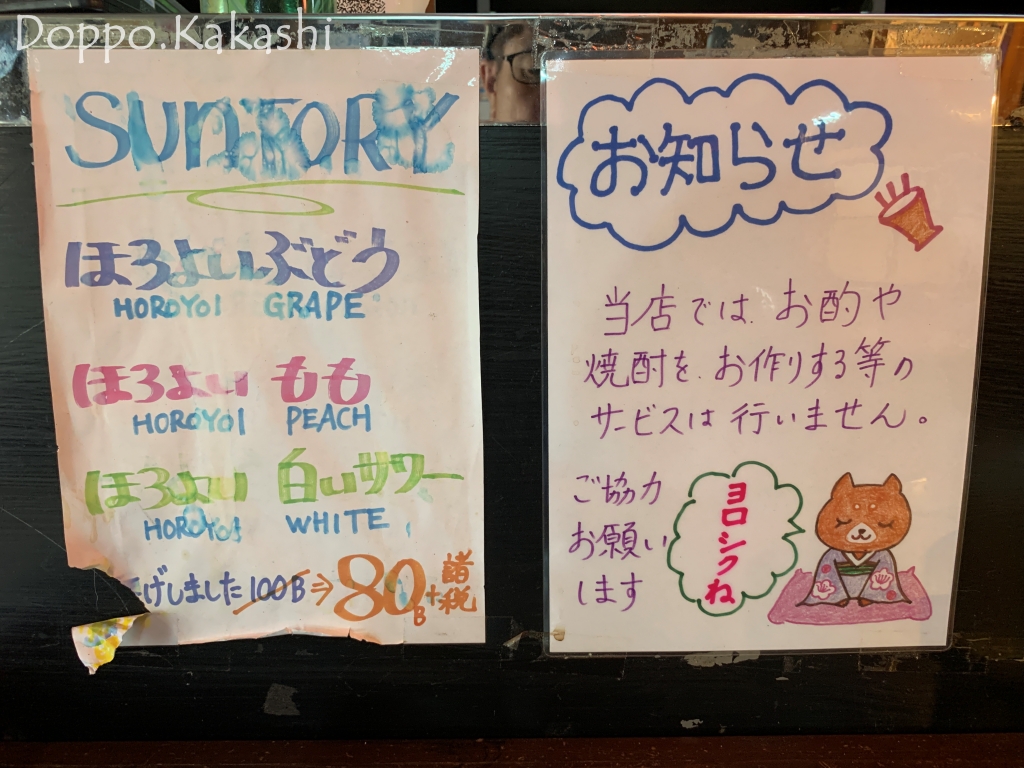 Doppo.Kakashi
SUNTORY
ほろよい ぶどう
HOROYOI GRAPE
ほろよい もも
HOROYOI PEACH
ほろよい 白いサワー
HOROYOI WHITE
げしました 100B⇒80B+諸税
お知らせ
当店では、お酌や
焼酎を、お作りする等の
サービスは行いません。
ご協力
お願い
します
ヨロシクね